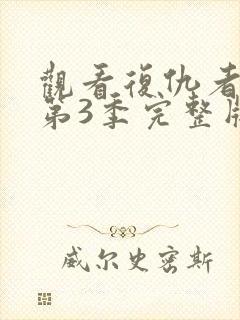 觀看復仇者
第3季完整版
威尔史密斯